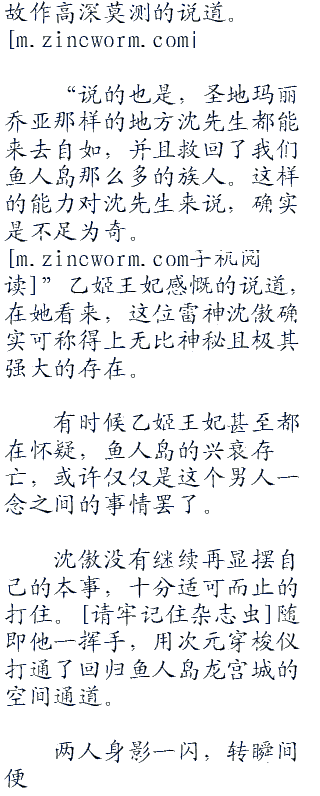 故作高深莫测的说道。
[m.zincworm.com]
“说的也是，圣地玛丽
乔亚那样的地方沈先生都能
来去自如，并且救回了我们
鱼人岛那么多的族人。这样
的能力对沈先生来说，确实
是不足为奇。
[m.zincworm.com手机阅
读]”乙姬王妃感慨的说道，
在她看来，这位雷神沈傲确
实可称得上无比神秘且极其
强大的存在。
有时候乙姬王妃甚至都
在怀疑，鱼人岛的兴衰存
亡，或许仅仅是这个男人一
念之间的事情罢了。
沈傲没有继续再显摆自
己的本事，十分适可而止的
打住。[请牢记住杂志虫]随
即他一挥手，用次元穿梭仪
打通了回归鱼人岛龙宫城的
空间通道。
两人身影一闪，转瞬间
便